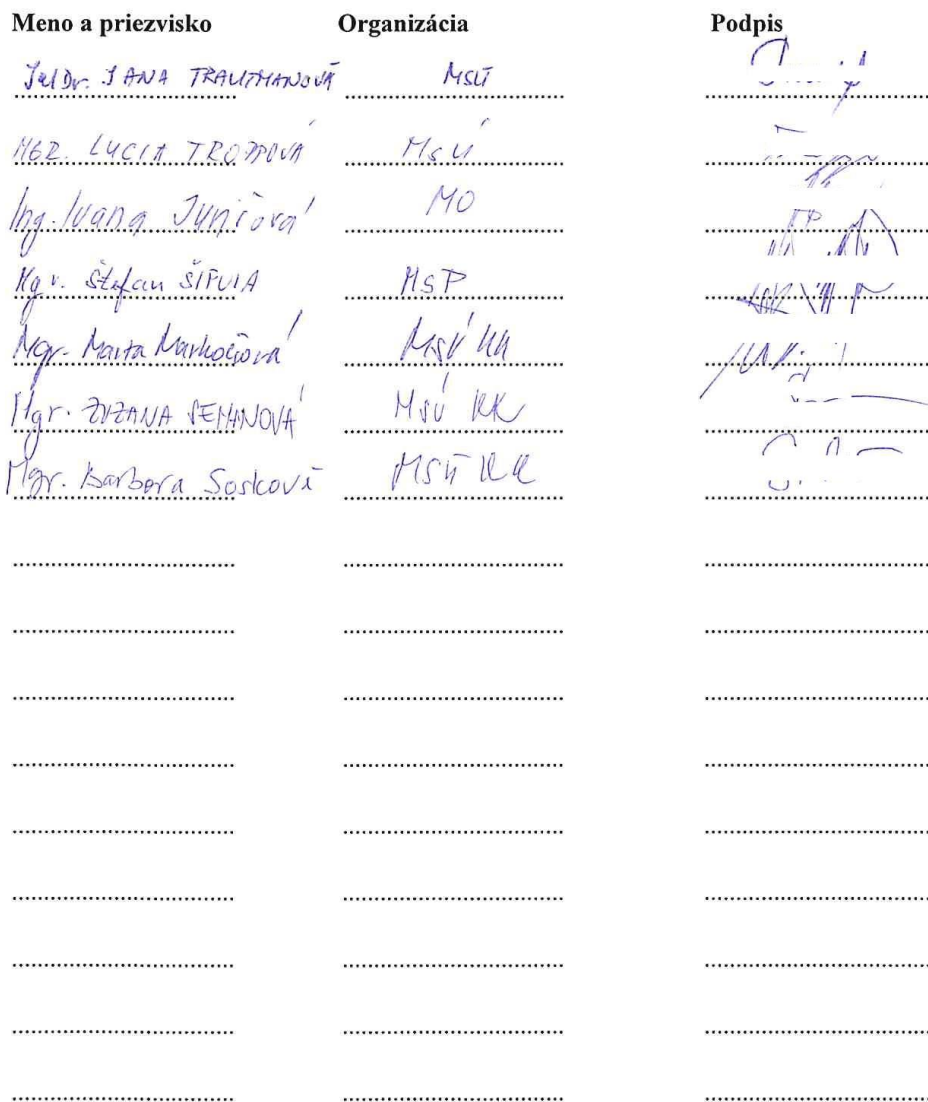 Meno a priezvisko Organizácia Podpis
JuDr. JANA TRAUTMANOVÁ MsÚ
MGR. LUCIA TROPPOVÁ MsÚ
Ing. Ivana Juničová MO
Mgr. Štefan ŠIPULA MsP
Mgr. Marta Markočiová MsÚ KK
Mgr. ZUZANA SEMANOVÁ MsÚ KK
Mgr. Barbora Sosková MSÚ KK